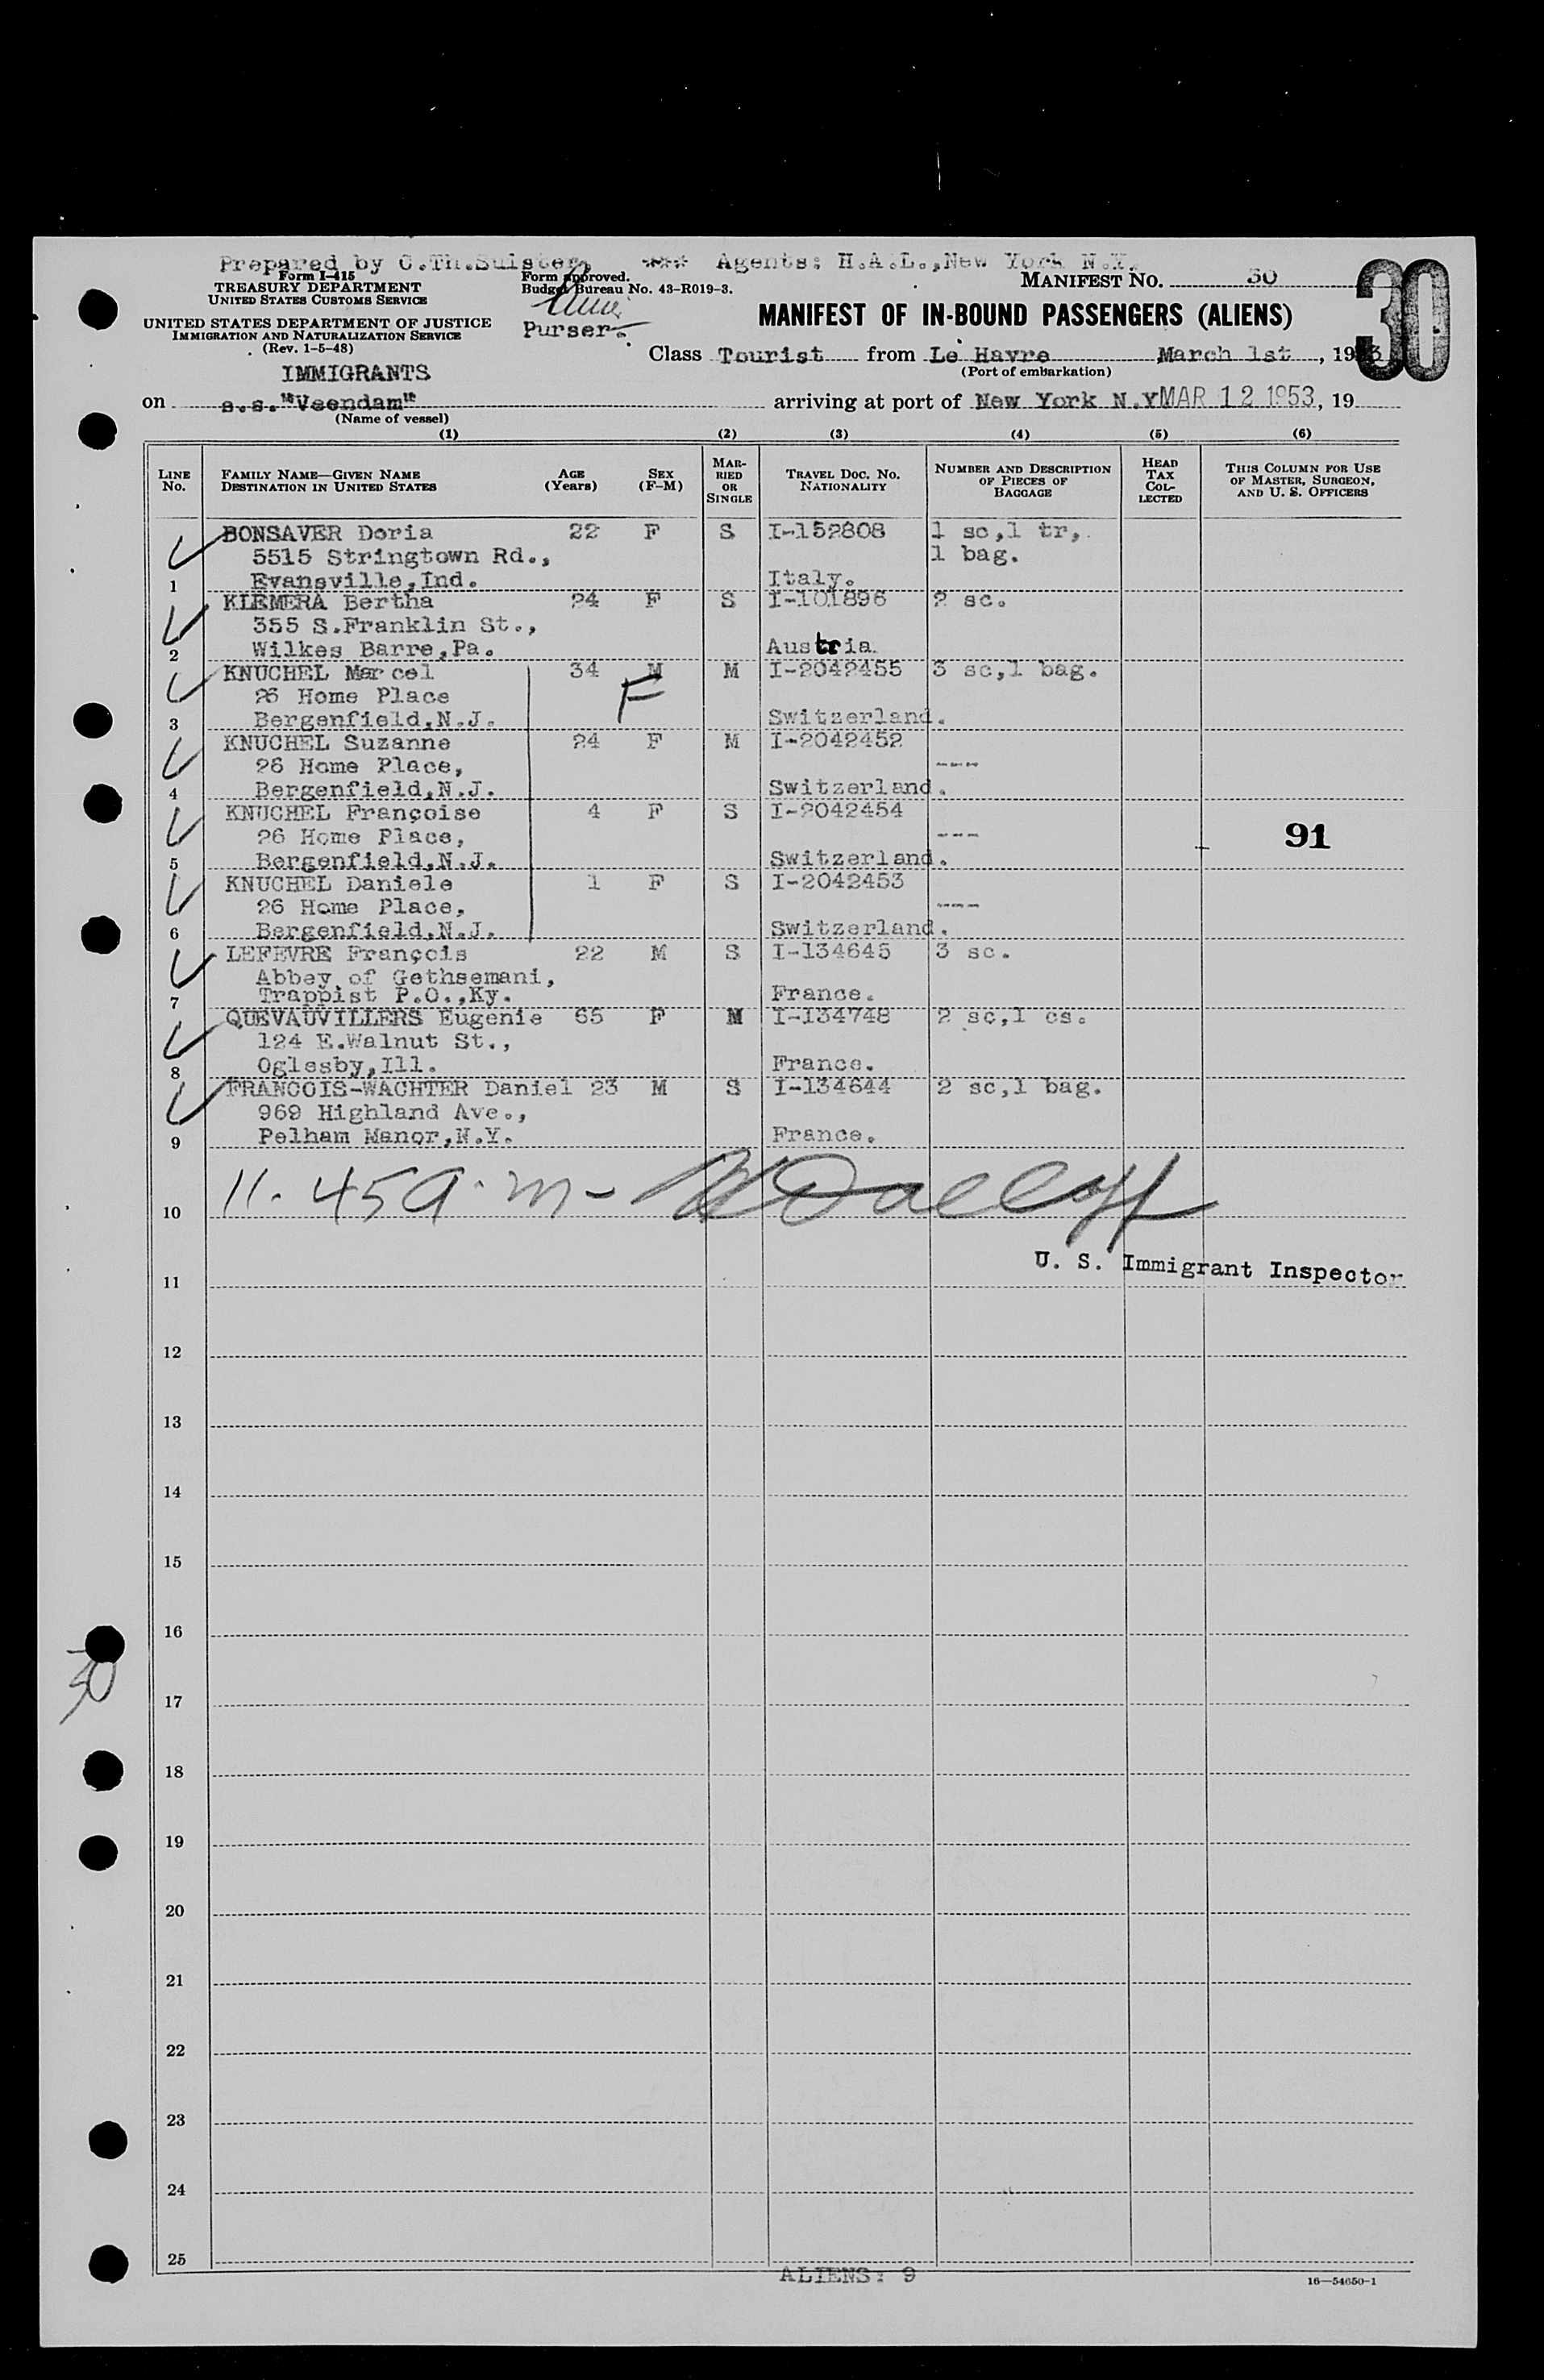 Prepared by C.Th.Sulster, *** Agents: H.A.L.,New York N.Y.
Form I-415
TREASURY DEPARTMENT
UNITED STATES CUSTOMS SERVICE
UNITED STATES DEPARTMENT OF JUSTICE
IMMIGRATION AND NATURALIZATION SERVICE
(Rev. 1-5-48)
Form approved.
Budget Bureau No. 43-R019-3.
Purser.
MANIFEST NO. 30
30
MANIFEST OF IN-BOUND PASSENGERS (ALIENS)
Class Tourist from Le Havre March 1st, 1953
(Port of embarkation)
IMMIGRANTS
on s.s."Veendam" arriving at port of New York N.Y MAR 12 1953, 19
(Name of vessel)
(1) (2) (3) (4) (5) (6)
LINE No. FAMILY NAME—GIVEN NAME DESTINATION IN UNITED STATES AGE (Years) SEX (F-M) MARRIED OR SINGLE TRAVEL DOC. NO. NATIONALITY NUMBER AND DESCRIPTION OF PIECES OF BAGGAGE HEAD TAX COLLECTED THIS COLUMN FOR USE OF MASTER, SURGEON, AND U. S. OFFICERS
BONSAVER Doria 22 F S I-152808 1 sc,1 tr,
5515 Stringtown Rd., 1 bag.
1 Evansville,Ind. Italy.
KLEMERA Bertha 24 F S I-101896 2 sc.
355 S.Franklin St.,
2 Wilkes Barre,Pa. Austria.
KNUCHEL Marcel 34 M M I-2042455 3 sc,1 bag.
26 Home Place F
3 Bergenfield,N.J. Switzerland.
KNUCHEL Suzanne 24 F M I-2042452
26 Home Place, ---
4 Bergenfield,N.J. Switzerland.
KNUCHEL Françoise 4 F S I-2042454
26 Home Place, --- 91
5 Bergenfield,N.J. Switzerland.
KNUCHEL Daniele 1 F S I-2042453
26 Home Place, ---
6 Bergenfield,N.J. Switzerland.
LEFEVRE François 22 M S I-134645 3 sc.
Abbey of Gethsemani,
7 Trappist P.O.,Ky. France.
QUEVAUVILLERS Eugenie 65 F M I-134748 2 sc,1 cs.
124 E.Walnut St.,
8 Oglesby,Ill. France.
FRANCOIS-WACHTER Daniel 23 M S I-134644 2 sc,1 bag.
969 Highland Ave.,
9 Pelham Manor,N.Y. France.
10 11.45 a.m-
U. S. Immigrant Inspector
11
12
13
14
15
16
30
17
18
19
20
21
22
23
24
25
ALIENS: 9
16—54650-1